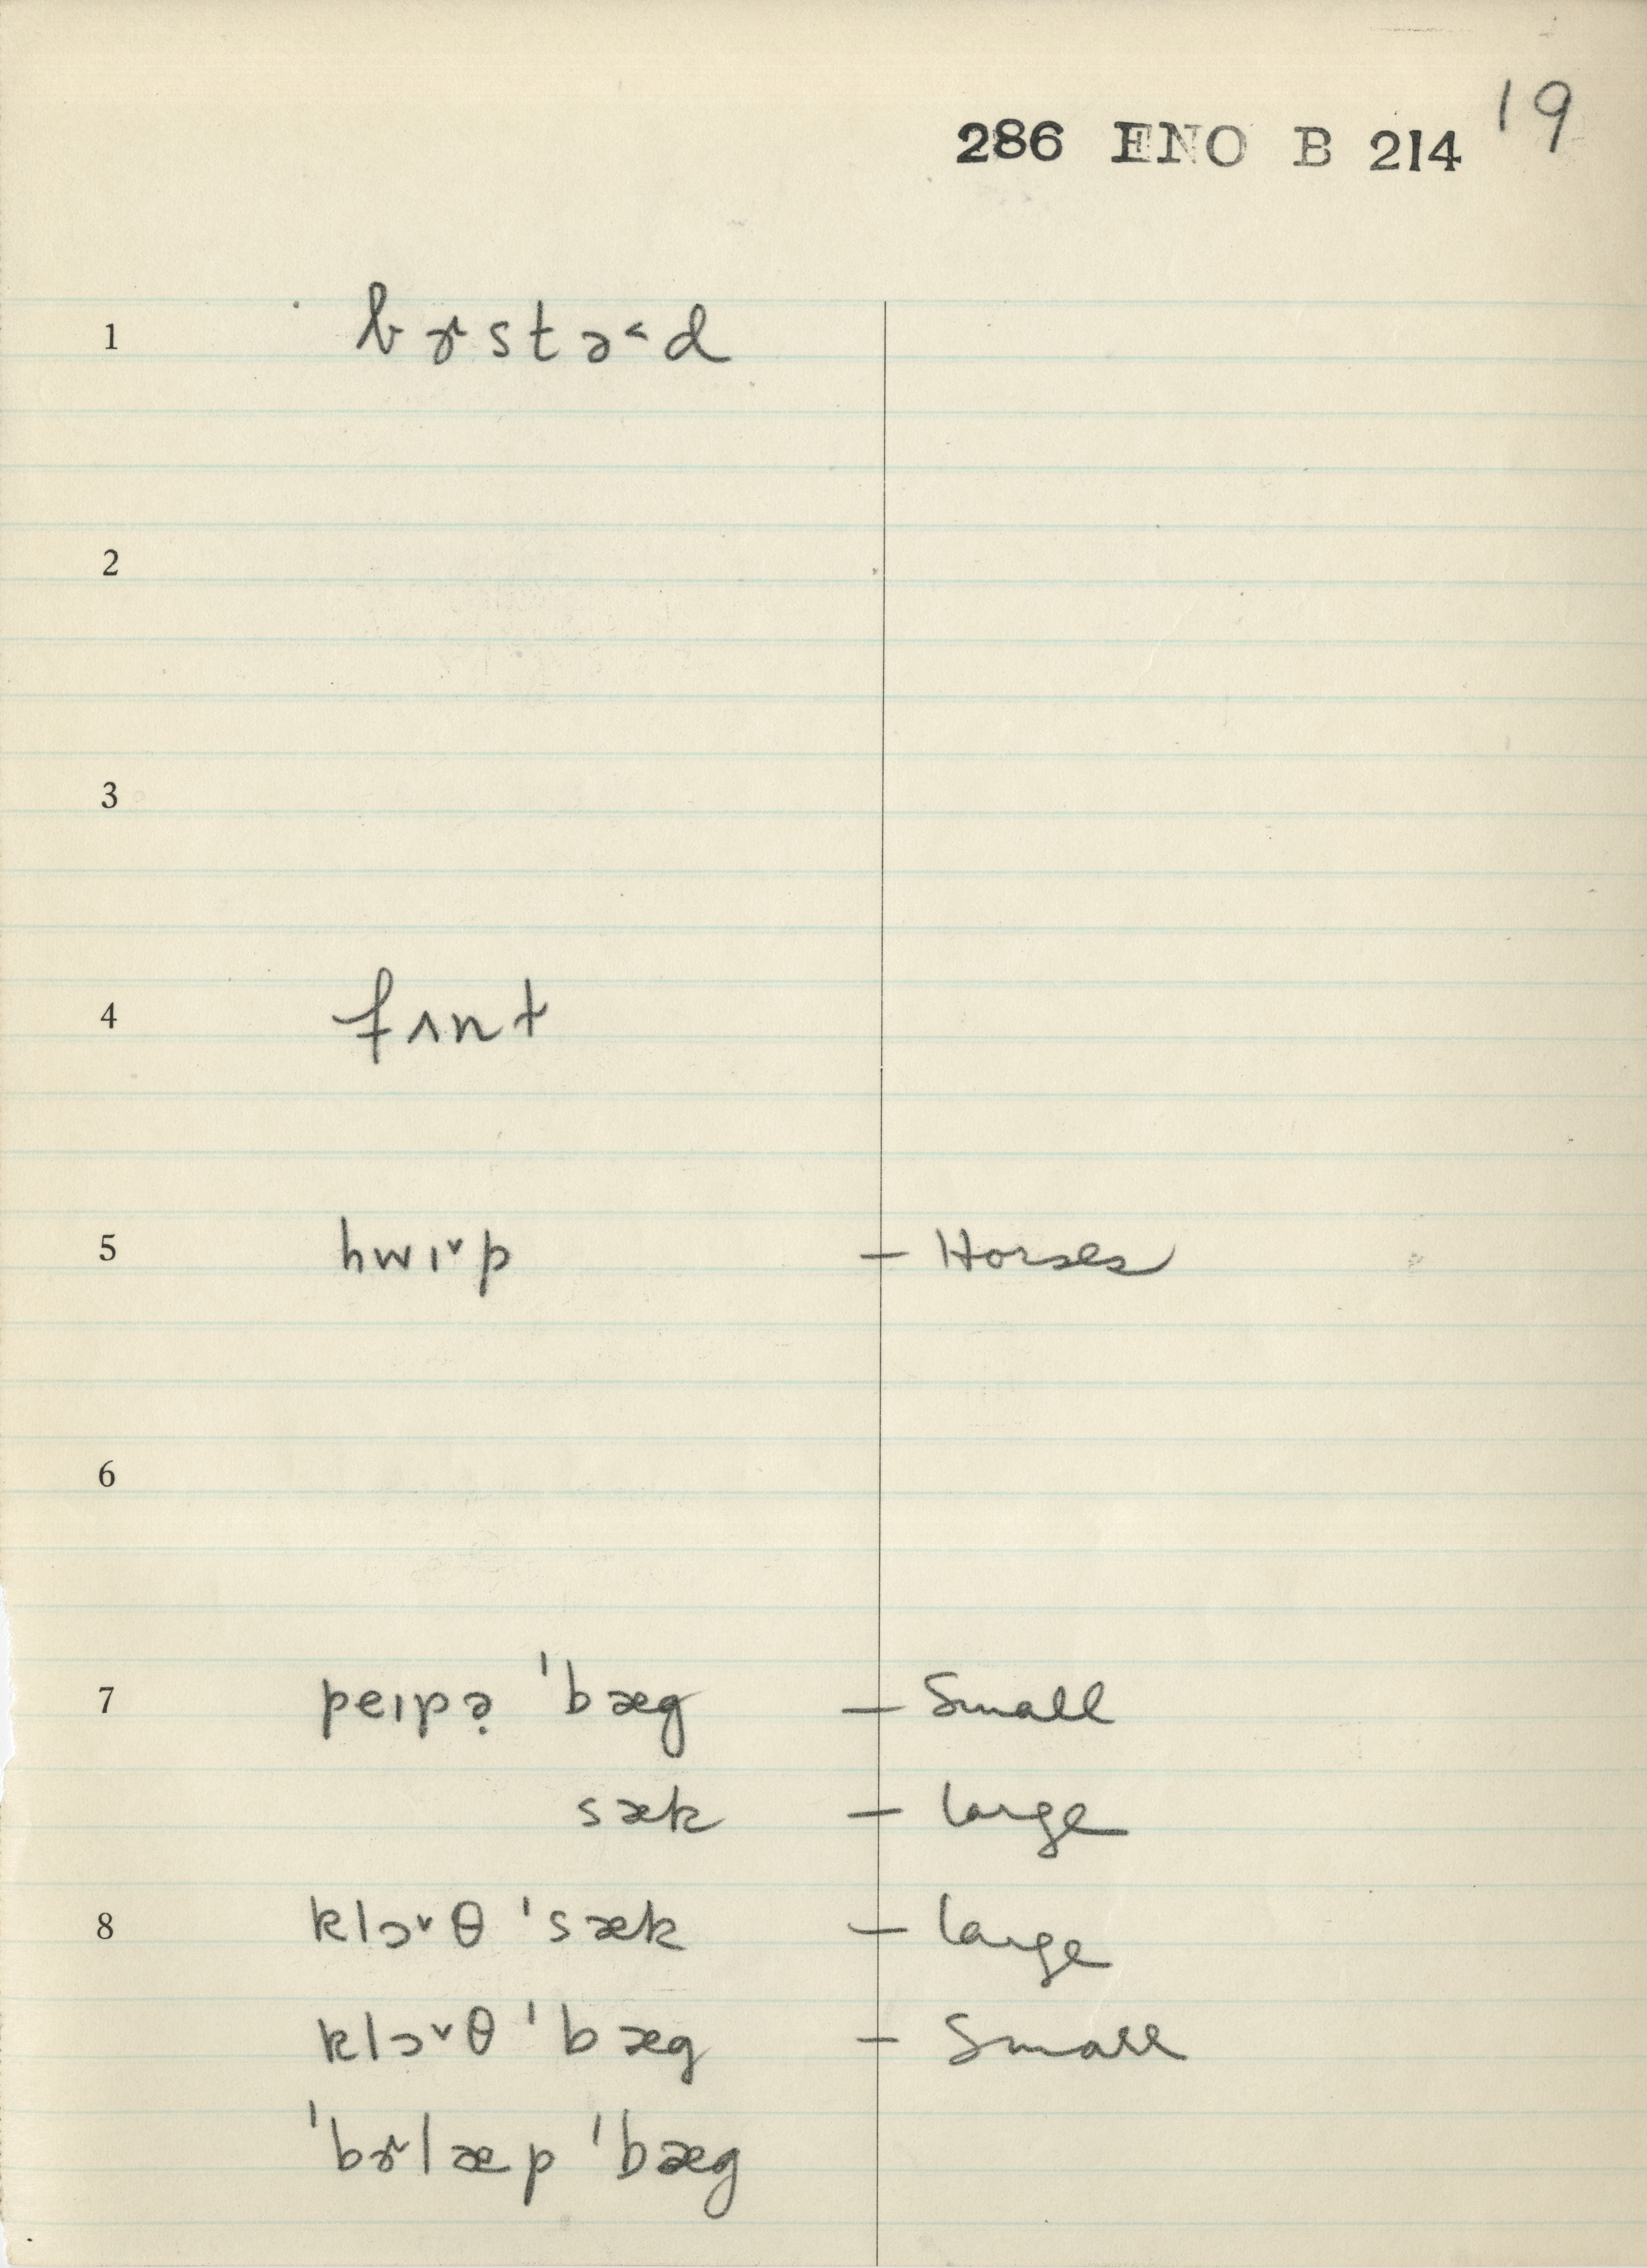 286 ENO B 214 19
1 bɚstə˂d
2
3
4 fʌnt
5 hwɪ˅p – Horses
6
7 peɪpə̣ ˈbæg – Small
sæk – large
8 klɔ˅θ ˈsæk – large
klɔ˅θ ˈbæg – Small
ˈbɚlæp ˈbæg